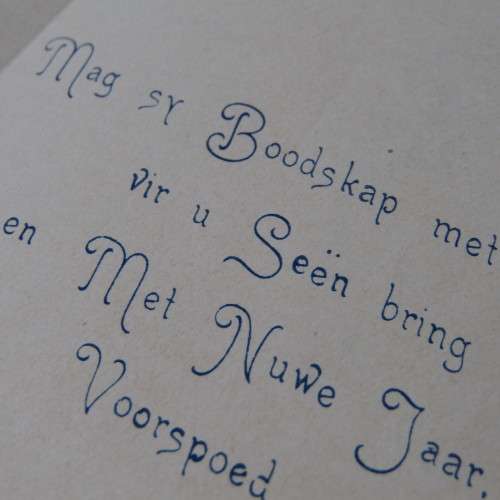 Mag sy Boodskap met
vir u Seën bring
en Met Nuwe Jaar.
Voorspoed